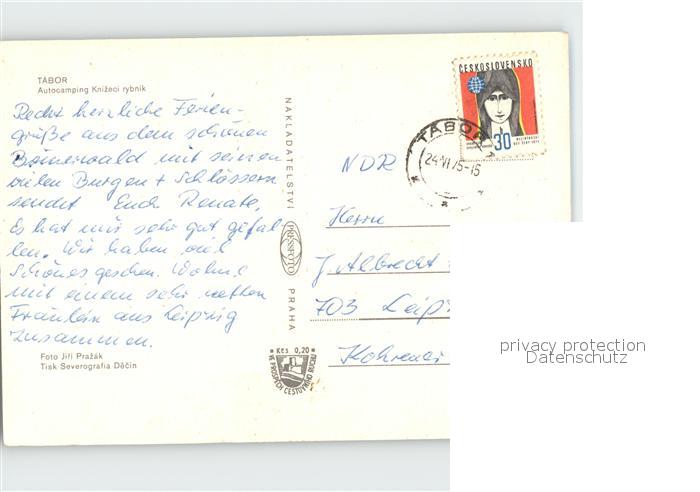 TÁBOR
Autocamping Knížecí rybník
Recht herzliche Ferien-
grüße aus dem schönen
Böhmerwald mit seinen
vielen Burgen + Schlössern
sendet Euch Renate.
Es hat mir sehr gut gefal-
len. Wir haben viel
Schönes gesehen. Wohne
mit einem sehr netten
Fräulein aus Leipzig
zusammen.
Foto Jiří Pražák
Tisk Severografia Děčín
NAKLADATELSTVÍ
PRESSFOTO
PRAHA
Kčs 0,20
VE PROSPĚCH CESTOVNÍHO RUCHU
ČESKOSLOVENSKO
30
TÁBOR 1
24.VI.75-15
NDR
Herrn
J. Albrecht
703 Leipz
Kohrener
privacy protection
Datenschutz